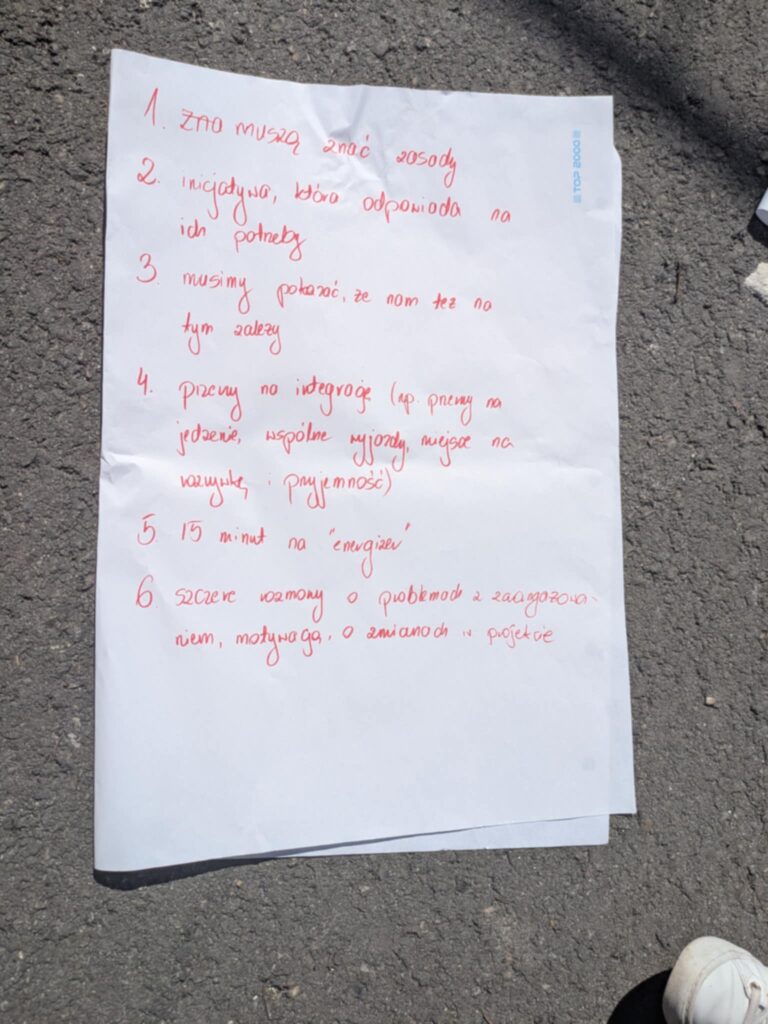 1. ZNO muszą znać zasady
2. inicjatywa, która odpowiada na
ich potrzeby
3 musimy pokazać, że nam też na
tym zależy
4. przerwy na integrację (np. przerwy na
jedzenie, wspólne wyjazdy, miejsce na
rozrywkę i przyjemność)
5 15 minut na "energizer"
6. szczere rozmowy o problemach z zaangażowa-
niem, motywacją, o zmianach w projekcie
TOP 2000